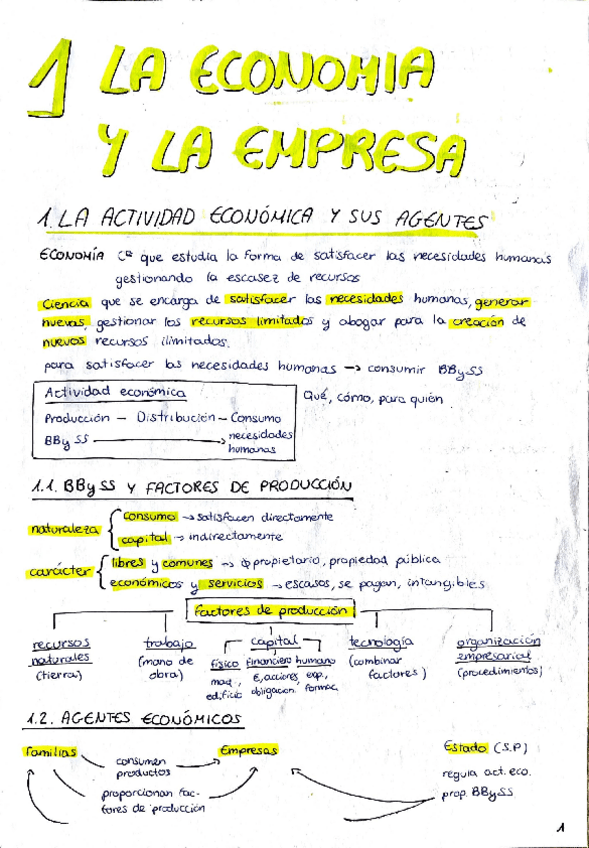 1 LA ECONOMIA
Y LA EMPRESA
1. LA ACTIVIDAD ECONÓMICA Y SUS AGENTES
ECONOMÍA Cª que estudia la forma de satisfacer las necesidades humanas
gestionando la escasez de recursos
Ciencia que se encarga de satisfacer las necesidades humanas, generar
nuevas, gestionar los recursos limitados y abogar para la creación de
nuevos recursos ilimitados.
para satisfacer las necesidades humanas → consumir BBySS
Actividad económica
Qué, cómo, para quién
Producción – Distribución – Consumo
BBySS → necesidades
humanas
1.1. BBySS Y FACTORES DE PRODUCCIÓN
naturaleza { consumo → satisfacen directamente
capital → indirectamente
carácter { libres y comunes → propietario, propiedad pública
económicos y servicios → escasos, se pagan, intangibles
Factores de producción
recursos naturales (tierra)
trabajo (mano de obra)
capital
físico maq., edificio
financiero €, acciones obligacion.
humano exp., formac.
tecnología (combinar factores)
organización empresarial (procedimientos)
1.2. AGENTES ECONÓMICOS
Familias
Empresas
Estado (S.P)
consumen
productos
regula act. eco.
proporcionan fac-
tores de producción
prop. BBySS
1